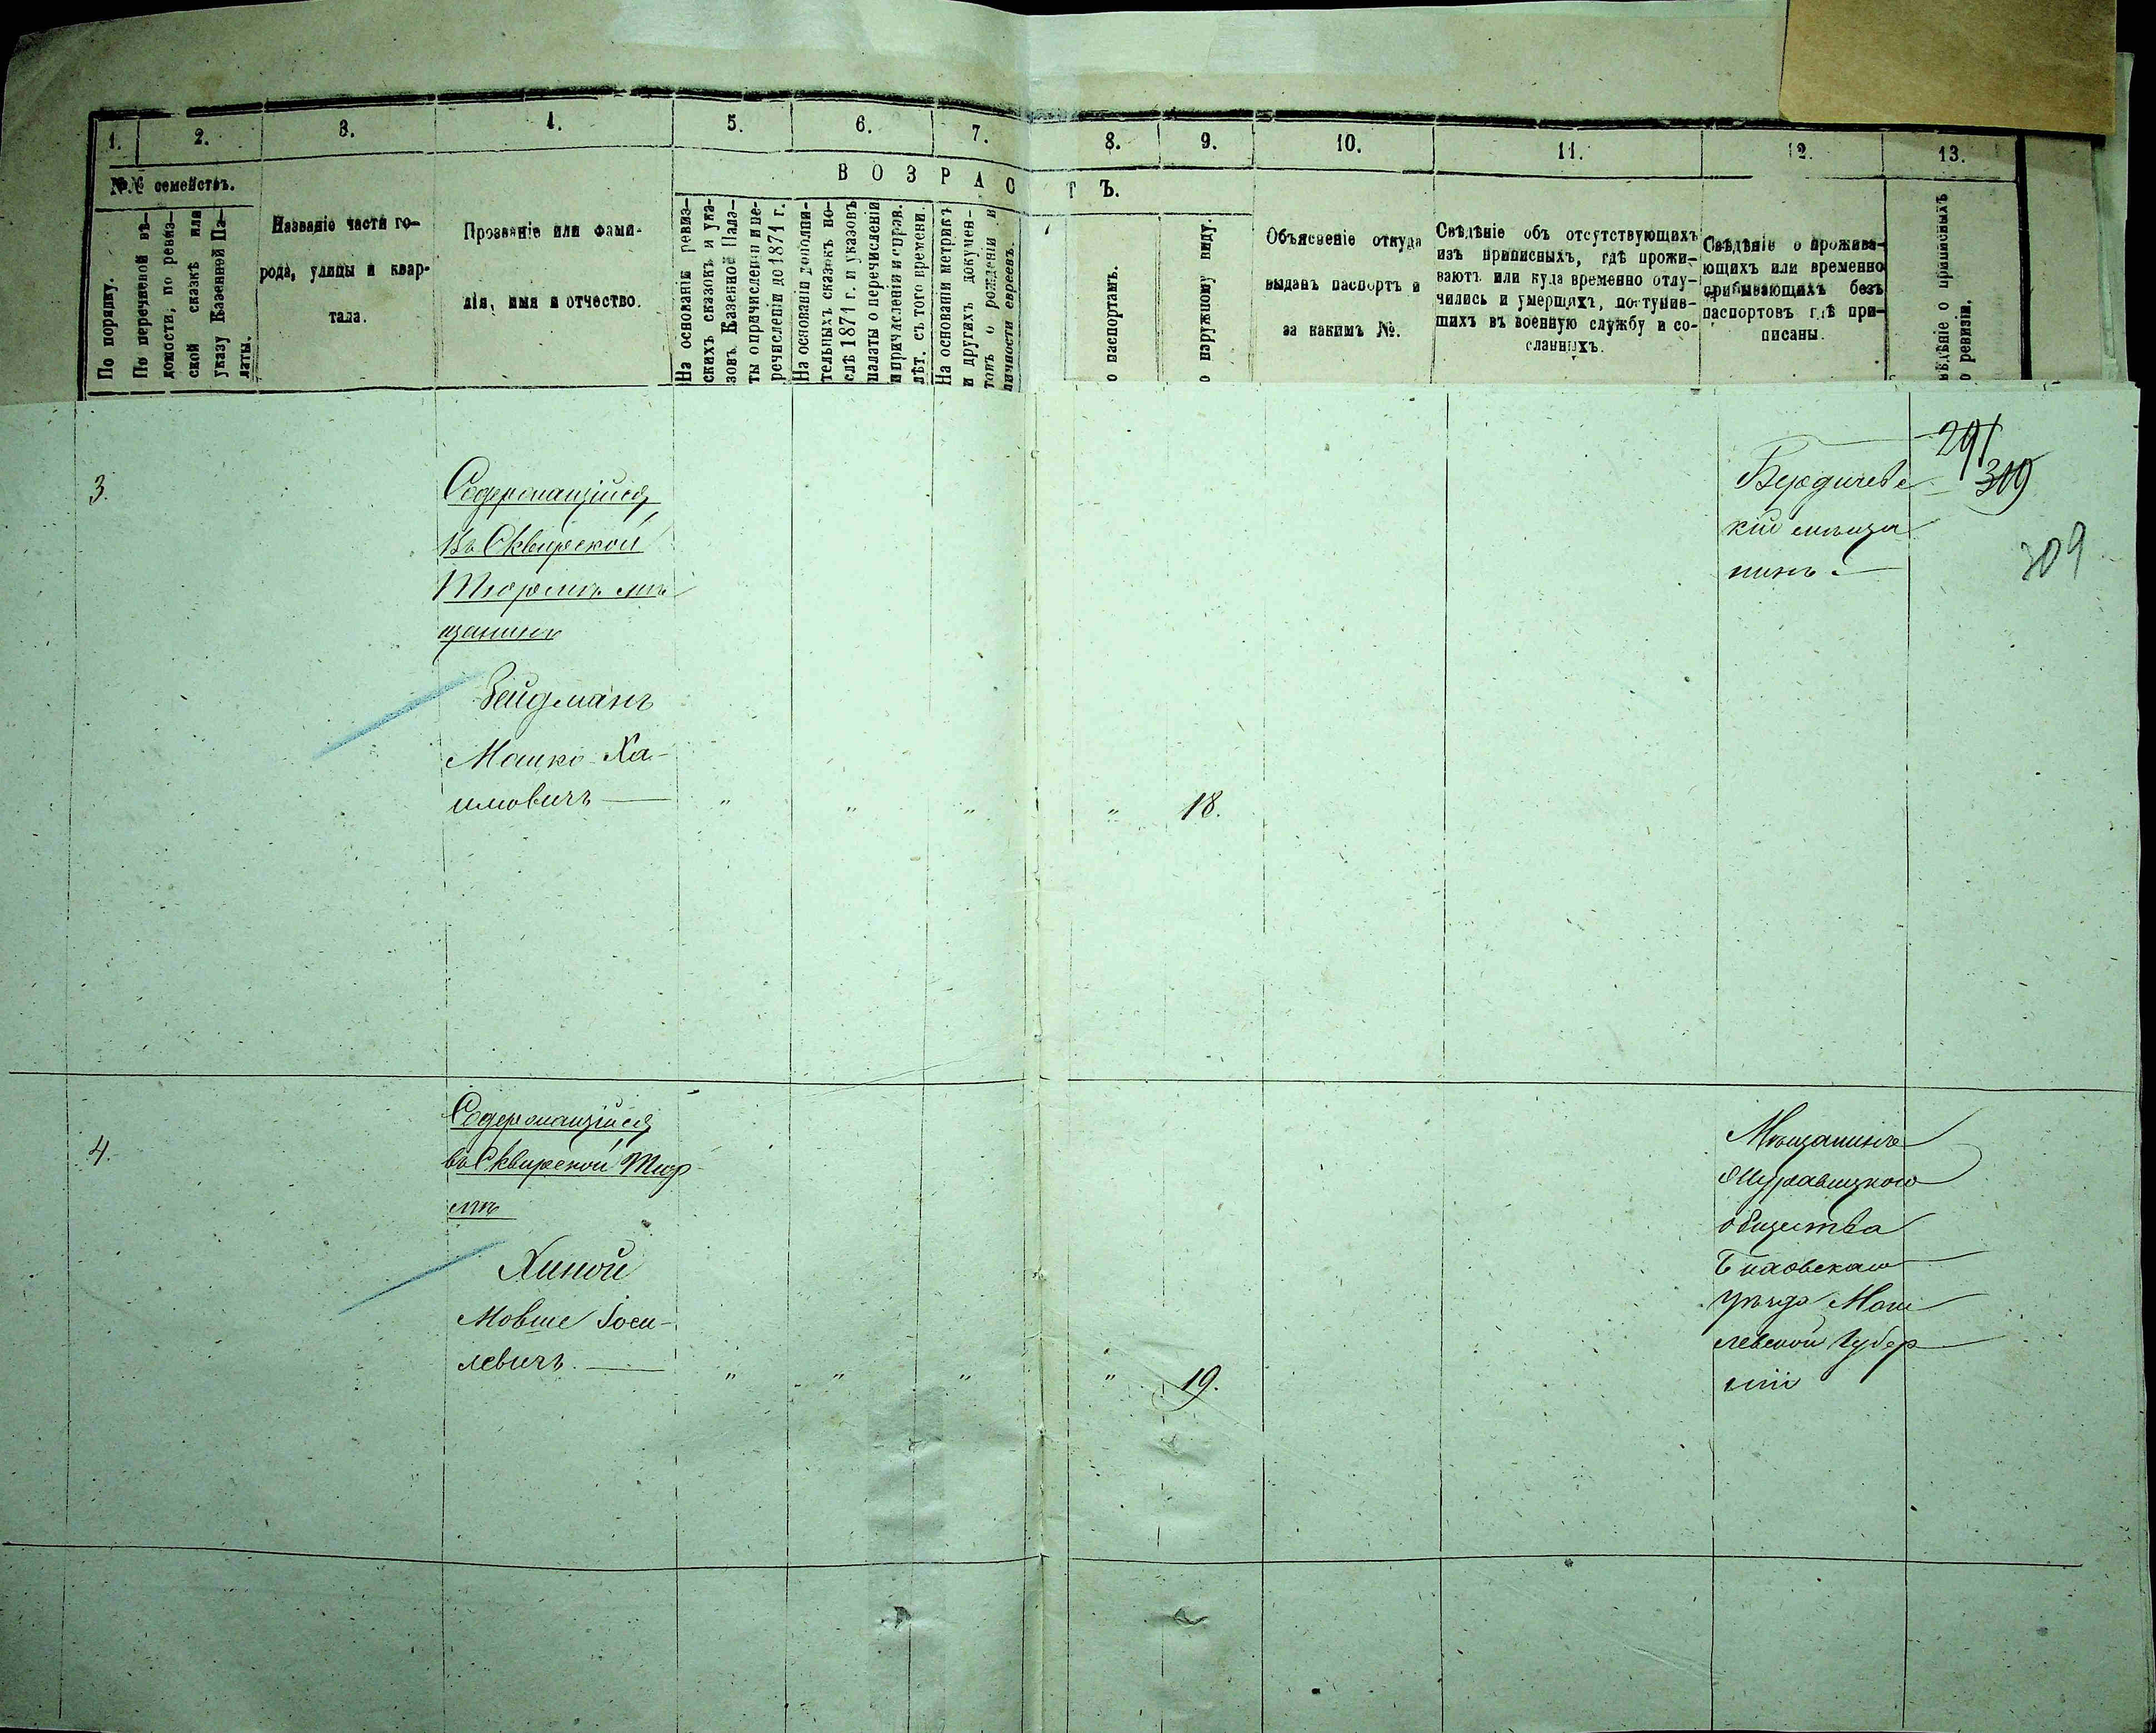 1.
2.
3.
4.
5.
6.
7.
8.
9.
10.
11.
12.
13.
№№ семействъ.
По порядку.
По перечневой вѣ-
домости, по ревиз-
ской сказкѣ или
указу Казенной Па-
латы.
Названіе части го-
рода, улицы и квар-
тала.
Прозваніе или фами-
лія, имя и отчество.
ВОЗРАСТЪ.
На основаніи ревиз-
скихъ сказокъ и ука-
зовъ Казенной Пала-
ты о причисленіи и пе-
речисленіи до 1871 г.
На основаніи дополни-
тельныхъ сказокъ по-
слѣ 1871 г. и указовъ
палаты о перечисленіи
и причисленіи и справ.
лѣт. съ того времени.
На основаніи метрикъ
и другихъ докумен-
товъ о рожденіи и
личности евреевъ.
о паспортамъ.
о наружному виду.
Объясненіе откуда
выданъ паспортъ и
за какимъ №.
Свѣдѣніе объ отсутствующихъ
изъ приписныхъ, гдѣ прожи-
ваютъ или куда временно отлу-
чились и умершихъ, поступив-
шихъ въ военную службу и со-
сланныхъ.
Свѣдѣніе о прожива-
ющихъ или временно
прибывающихъ безъ
паспортовъ гдѣ при-
писаны.
вѣдѣніе о приписныхъ
о ревизіи.
291
309
309
3.
Содержащійся
Въ Сквирской
Тюрмѣ мѣ
щанинъ
Зейдманъ
Мошко Ха-
имовичъ
" " " " 18.
Бердичевс
кій мѣща
нинъ
4.
Содержащійся
въ Сквирской Тюр
мѣ
Хиной
Мовше Іосе-
левичъ.
" " " " 19.
Мѣщанинъ
общества
уѣзда Моги
левской Губер
ніи